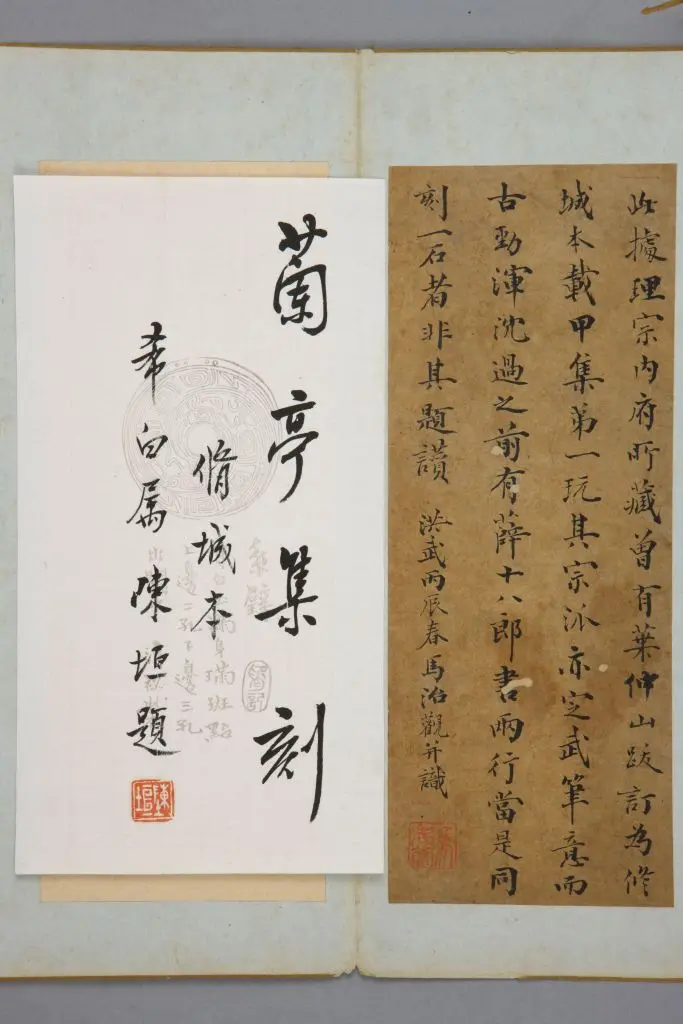 此據理宗內府所藏曾有葉仲山跋訂為修
城本載甲集弟一玩其宗派亦定武筆意而
古勁渾沈過之前有薛十八郎書兩行當是同
刻一石者非其題讚 洪武丙辰春馬治觀并識
蘭亭集刻
脩城本
希白屬陳垣題
陳垣